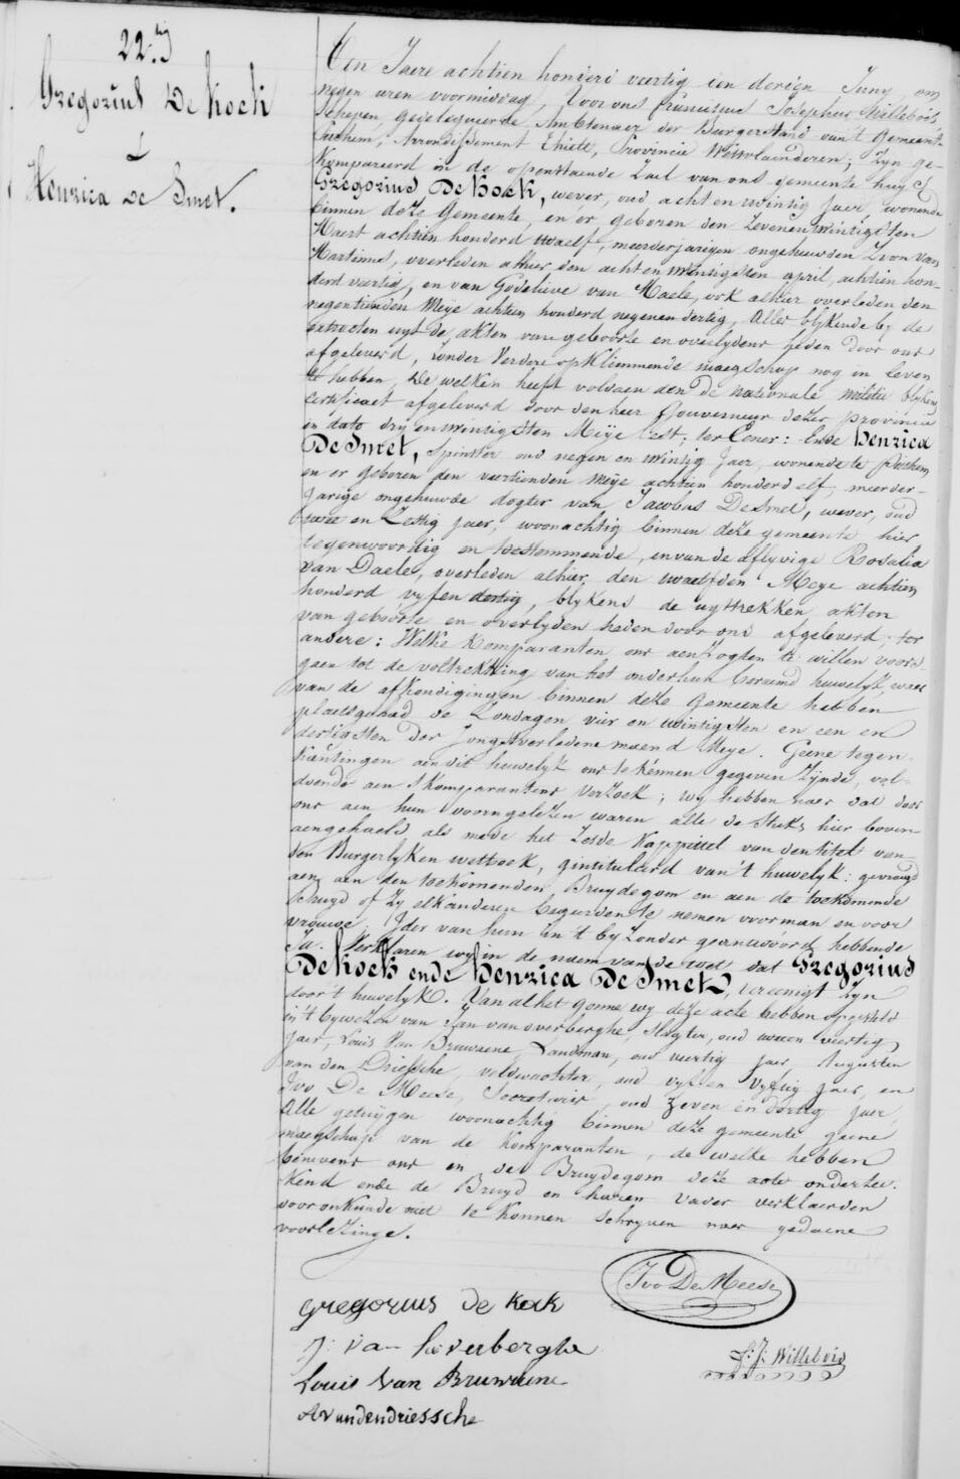 22.
Gregorius De Kock
&
Henrica De Smet.
Ten Jaere achtien honderd veertig een derden Juny, om
negen uren voormiddag, Voor ons Franciscus Josephus Willebois,
Schepen, gedelegueerde Ambtenaer der Burgerstand van't Gemeente
Arrondissement Thielt, Provincie Westvlaenderen; zyn ge-
kompareerd in de openstaende Zael van ons gemeente huys
Gregorius De Kock, wever, oud acht en twintig Jaer, wonende
binnen deze Gemeente, en er geboren den zevenentwintigsten
Maert achtien honderd twaelf, meerderjarigen ongehuwden Zoon van
Martinus, overleden alhier den acht en twintigsten april achtien hon-
derd veertig, en van Godelieve van Maele, ook alhier overleden den
negentienden Meye achtien honderd negenendertig, Alles blykende by de
extracten uyt de akten van geboorte en overlydens heden door ons
afgeleverd, zonder Verdere opklimmende maegschap nog in leven
te hebben, De welken heeft voldaen aen de nationale militie blykens
certificaet afgeleverd door den heer Gouverneur dezer provincie
in dato dry en twintigsten Meye lest, ter Eener: Ende Henrica
De Smet, Spinster oud negen en twintig Jaer, wonende te
en er geboren den veertienden Meye achtien honderd elf, meerder-
Jarige ongehuwde dogter van Jacobus De Smet, wever, oud
twee en Zestig Jaer, woonachtig binnen deze gemeente hier
tegenwoordig en toestemmende, en van de aflyvige Rosalia
Van Daele, overleden alhier, den twaelfden Meye achtien
honderd vyfendertig, blykens de uyttrekken akten
van geboorte en overlyden heden door ons afgeleverd; ter
andere: Welke komparanten ons aenzogten te willen voors-
gaen tot de voltrekking van het onderhun beraemd huwelyk, waer
van de afkondigingen binnen deze Gemeente hebben
plaets gehad de Zondagen vier en twintigsten en een en
dertigsten der Jongstverledene maend Meye. Geene tegen-
kantingen aen dit huwelyk ons te kennen gegeven zynde, vol-
doende aen 's komparantens verzoek; wy hebben naer dat door
ons aen hun voorengelezen waren alle de stuks hier boven
aengehaeld, als mede het Zesde Kappittel van den titel van
den Burgerlyken wetboek, geintituleerd van't huwelyk: gevraegd
aen den toekomenden Bruydegom en aen de toekomende
Bruyd of Zy elkanderen begeerden te nemen voor man en voor
vrouwe, Ider van hun in't byzonder geantwoord hebbende
Ja. Verklaren wy in de naem van de wet dat Gregorius
De Kock ende Henrica De Smet, vereenigt zyn
door't huwelyk. Van al het gonne wy deze acte hebben opgesteld
in't bywezen van Jan van overberghe, oud veertig
jaer, Louis Van Bruwaene, Landsman, oud veertig jaer, Augusten
van den Driessche, veldwachter, oud vyf en vyftig Jaer, en
Ivo De Meese, Secretaris, oud zeven en dertig jaer,
Alle getuygen woonachtig binnen deze gemeente geene
maegschap van de Komparanten, de welke hebben
benevens ons en de Bruydegom deze acte onderte-
kend ende de Bruyd en haeren Vader verklaerden
voor onkunde niet te konnen Schryven naer gedaene
voorlezinge.
Ivo De Meese
gregorius de kock
J: van hoverberghe
F: J: Willebois
Louis Van Bruwaene
A vandendriessche